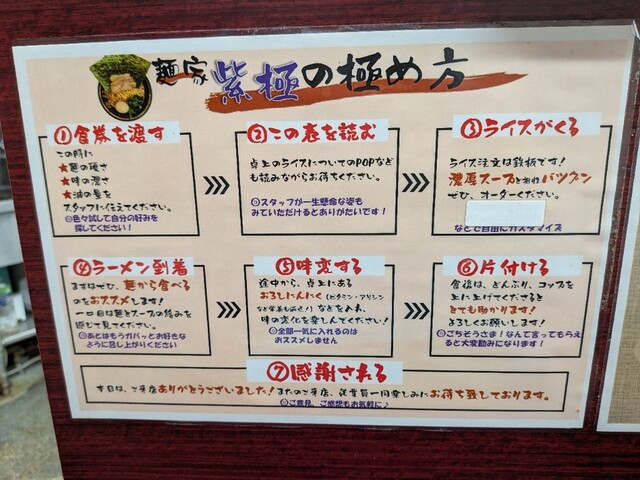 麺家 紫極の極め方
①食券を渡す
この時に
★麺の硬さ
★味の濃さ
★油の量を
スタッフに伝えてください。
◎色々試して自分の好みを
探してください!
②この表を読む
卓上のライスについてのPOPなど
も読みながらお待ちください。
◎スタッフが一生懸命な姿も
みていただけるとありがたいです!
③ライスがくる
ライス注文は鉄板です!
濃厚スープと相性バツグン
ぜひ、オーダーください。
などで自由にカスタマイズ
④ラーメン到着
まずはぜひ、麺から食べる
のをおススメします!
一口目は麺とスープの絡みを
感じて見てください。
◎あとはもうガバっとお好きな
ように召し上がりください
⑤味変する
途中から、卓上にある
おろしにんにく(ビタミン・アリシン
など栄養も満点!)などを入れ、
味の変化を楽しんでください!
◎全部一気に入れるのは
おススメしません
⑥片付ける
食後は、どんぶり、コップを
上に上げてくださると
とても助かります!
よろしくお願いします!
◎ごちそうさま!なんて言ってもらえ
ると大変励みになります!
⑦感謝される
本日は、ご来店ありがとうございました!またのご来店、従業員一同楽しみにお待ち致しております。
◎ご意見、ご感想もお気軽に♪